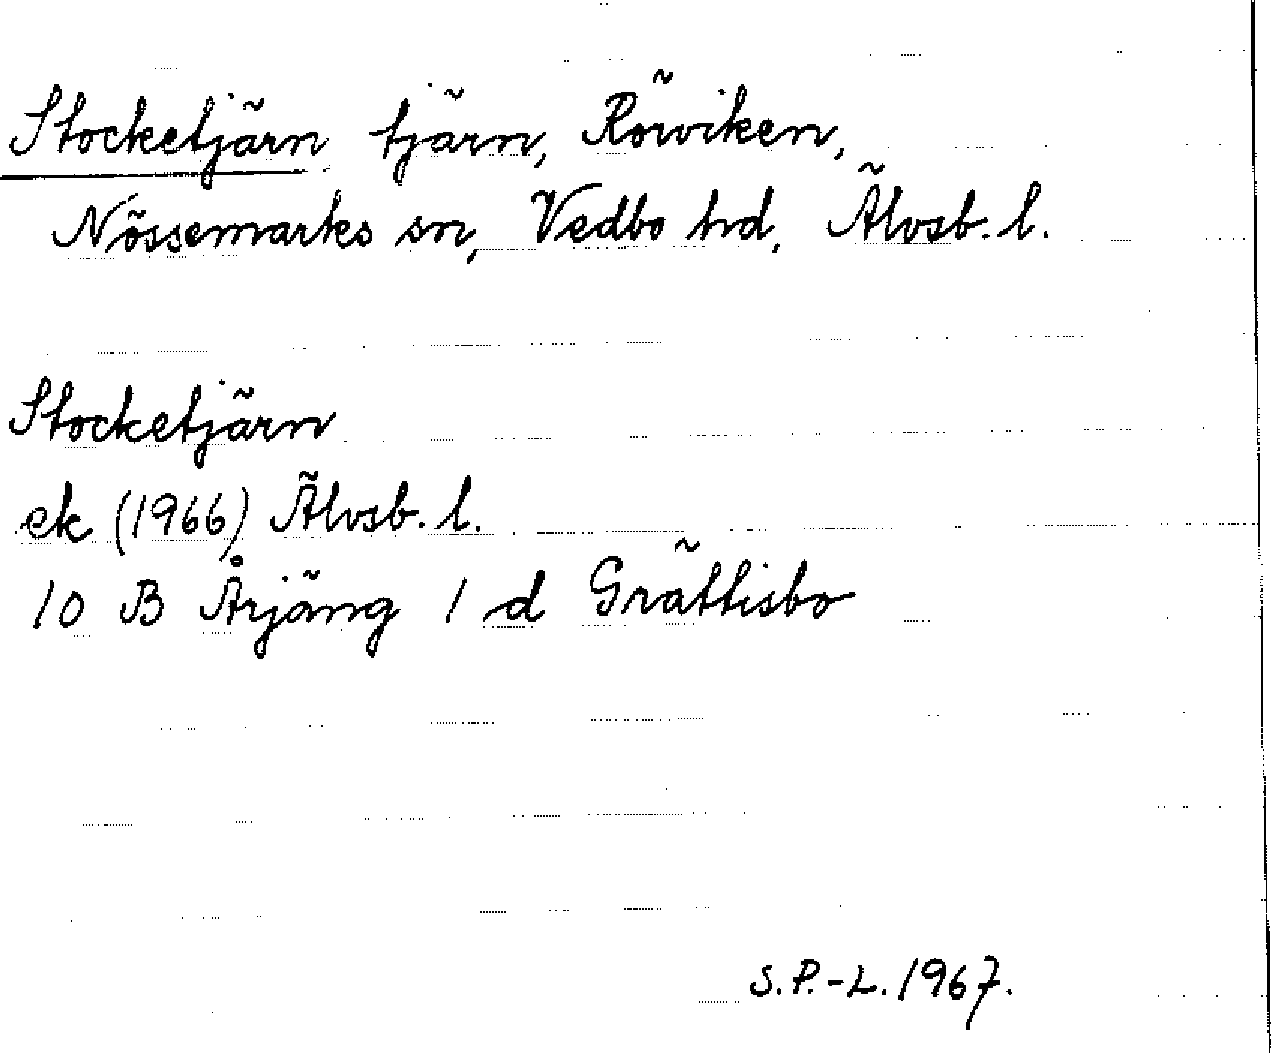 Stocketjärn tjärn, Rörviken,
Nössemarks sn, Vedbo hd, Älvsb. l.
Stocketjärn
ek (1966) Älvsb. l.
10 B Årjäng 1 d Grättisbo
S.P.-L. 1967.